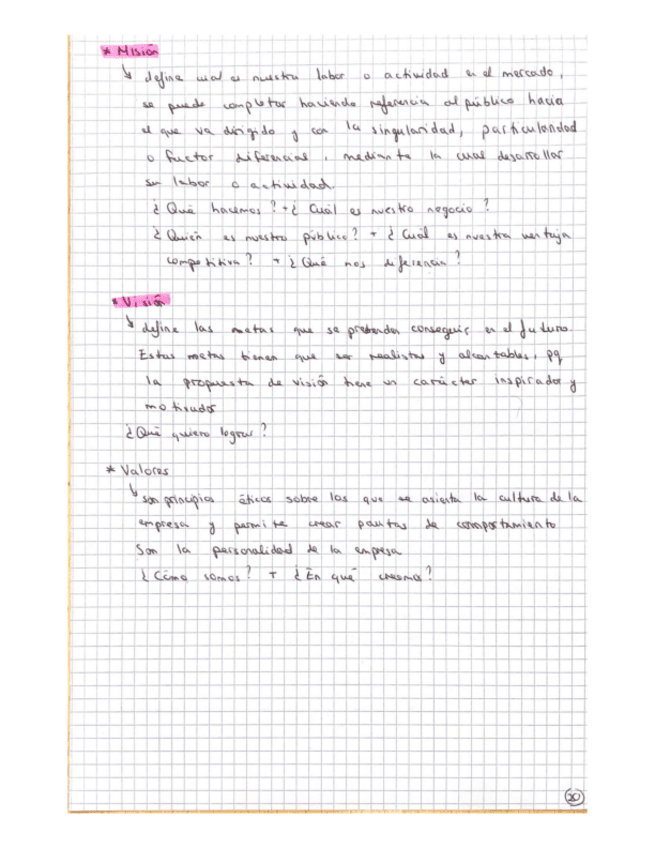 * Misión
↳ define cual es nuestra labor o actividad en el mercado,
se puede completar haciendo referencia al público hacia
el que va dirigido y con la singularidad, particularidad
o factor diferencial, mediante la cual desarrollar
su labor o actividad.
¿Qué hacemos? + ¿Cuál es nuestro negocio?
¿Quién es nuestro público? + ¿Cuál es nuestra ventaja
competitiva? + ¿Qué nos diferencia?
* Visión
↳ define las metas que se pretenden conseguir en el futuro.
Estas metas tienen que ser realistas y alcanzables, pq
la propuesta de visión tiene un carácter inspirador y
motivador
¿Qué quiero lograr?
* Valores
↳ son principios éticos sobre los que se asienta la cultura de la
empresa y permite crear pautas de comportamiento
Son la personalidad de la empresa
¿Cómo somos? + ¿En qué creemos?
20